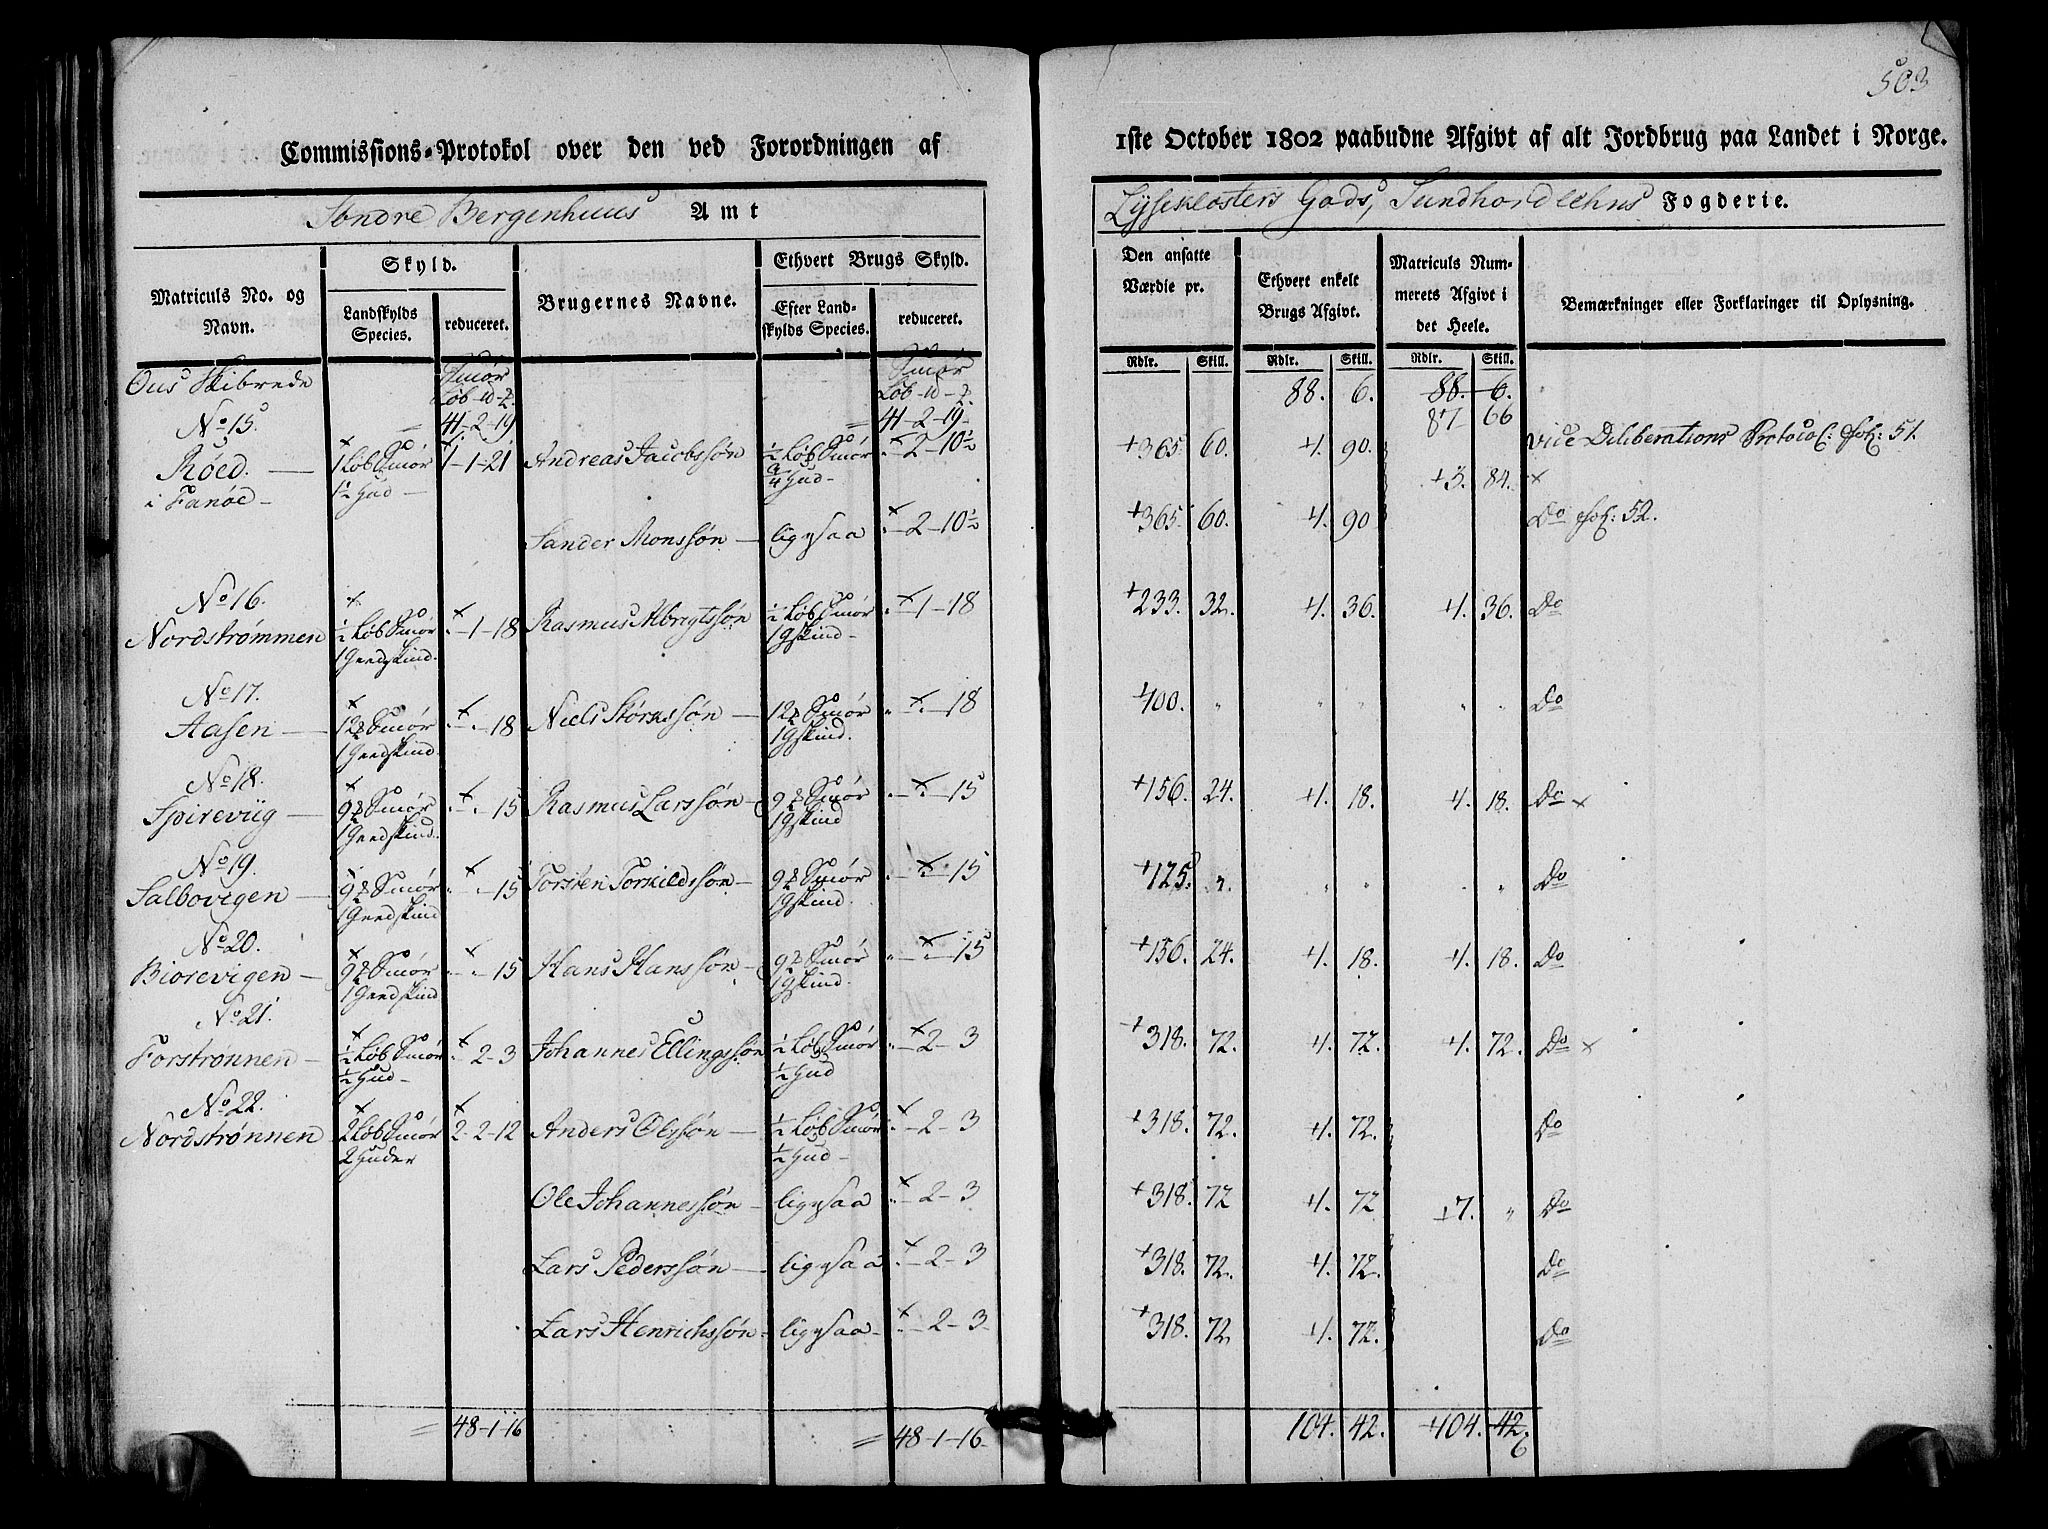 503
Commissions-Protokol over den ved Forordningen af
1ste October 1802 paabudne Afgivt af alt Jordbrug paa Landet i Norge.
Søndre Bergenhuus Amt
Lyseklosters Gods, Sundhordlehns Fogderie.
Matriculs No. og Navn.
Skyld.
Landskylds Species.
reduceret.
Brugernes Navne.
Ethvert Brugs Skyld.
Efter Landskylds Species.
reduceret.
Den ansatte Værdie pr.
Ethvert enkelt Brugs Afgivt.
Matriculs Nummerets Afgivt i det Heele.
Bemærkninger eller Forklaringer til Oplysning.
Rdlr. Skill. Rdlr. Skill. Rdlr. Skill.
Ous Skibrede Smør Smør
Løb - - 88. 6. 88. 6.
No 15. 41-2-19 41-2-19 87 66
Røed. 1 Løb Smør 1-1-21 Andreas Jacobssøn ½ Løb Smør -2-10½ 365. 60. 1. 90. Vide Deliberations Protocol: fol: 51.
i Fanøe 1½ Hud ¾ Hud 3. 84.
Sander Monssøn ligesaa -2-10½ 365. 60. 1. 90 Do fol: 52.
No 16.
Nordstrømmen ½ Løb Smør -1-18 Rasmus Albregtssøn ½ Løb Smør -1-18 233. 32. 1. 36. 1. 36. Do
1 Geedskind. 1 Gskind
No 17.
Aasen 12 Smør 18 Niels Størkssøn 12 Smør 18 400. Do
1 Geedskind 1 Gskind.
No 18.
Spireviig 9 Smør 15 Rasmus Larssøn 9 Smør 15 156. 24. 1. 18. 1. 18. Do
1 Geedskind. 1 Gskind
No 19.
Salbovigen 9 Smør 15 Torsten Torkildssøn 9 Smør 15 125. Do
1 Geedskind 1 Gskind.
No 20.
Biorevigen 9 Smør 15 Hans Hanssøn 9 Smør 15 156. 24. 1. 18. 1. 18. Do
1 Geedskind 1 Gskind.
No 21.
Forstrønnen ½ Løb Smør 2-3 Johannes Ellingssøn ½ Løb Smør -2-3 318. 72. 1. 72. 1. 72. Do
½ Hud ½ Hud
No 22.
Nordstrønnen 2 Løb Smør 2-2-12 Anders Olssøn ½ Løb Smør -2-3 318. 72. 1. 72. Do
2 Huder ½ Hud
Ole Johannessøn ligesaa -2-3 318. 72 1. 72 7. Do
Lars Pederssøn ligesaa -2-3 318. 72. 1. 72. Do
Lars Henrichssøn ligesaa -2-3 318. 72 1. 72. Do
48-1-16 48-1-16 104. 42. 104. 42
6